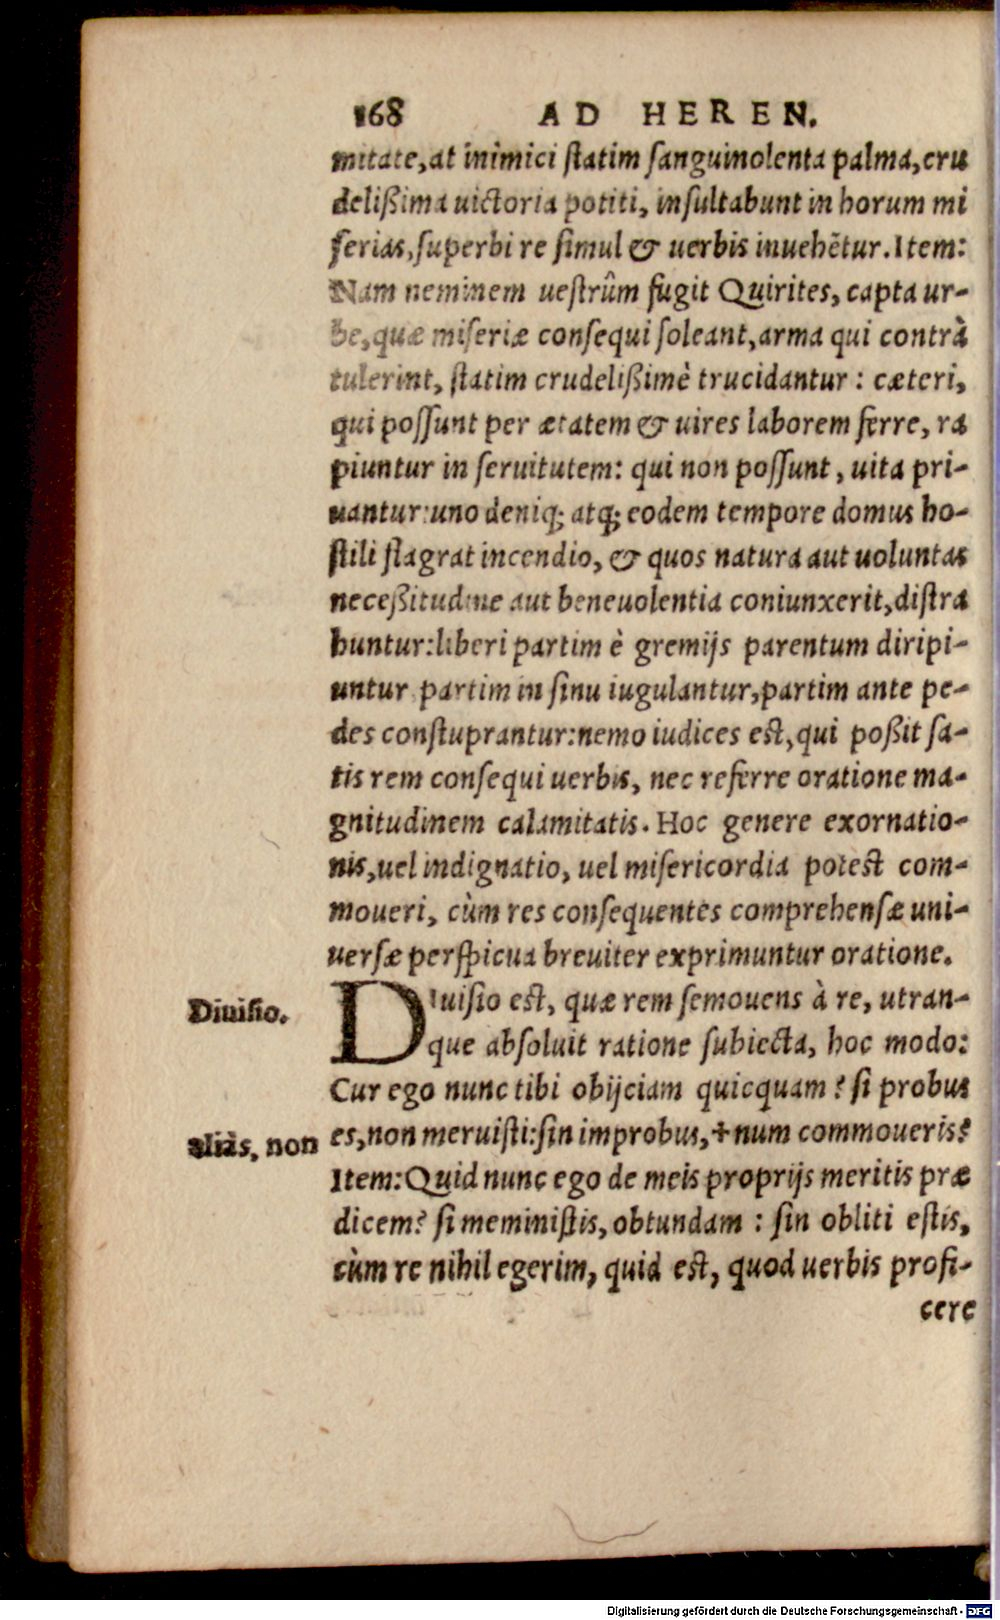 168 AD HEREN.
mitate, at inimici ſtatim ſanguinolenta palma, cru
delißima uictoria potiti, inſultabunt in horum mi
ſerias, ſuperbi re ſimul & uerbis inuehētur. Item:
Nam neminem ueſtrûm fugit Quirites, capta ur-
be, quæ miſeriæ conſequi ſoleant, arma qui contrà
tulerint, ſtatim crudelißimè trucidantur : cæteri,
qui poſſunt per ætatem & uires laborem ferre, ra
piuntur in ſeruitutem: qui non poſſunt, uita pri-
uantur: uno deniq; atq; eodem tempore domus ho-
ſtili flagrat incendio, & quos natura aut uoluntas
neceßitudine aut beneuolentia coniunxerit, diſtra
huntur: liberi partim è gremijs parentum diripi-
untur partim in ſinu iugulantur, partim ante pe-
des conſtuprantur: nemo iudices eſt, qui poßit ſa-
tis rem conſequi uerbis, nec referre oratione ma-
gnitudinem calamitatis. Hoc genere exornatio-
nis, uel indignatio, uel miſericordia poteſt com-
moueri, cùm res conſequentes comprehenſæ uni-
uerſæ perſpicua breuiter exprimuntur oratione.
Diuiſio. DIuiſio eſt, quæ rem ſemouens à re, utran-
que abſoluit ratione ſubiecta, hoc modo:
Cur ego nunc tibi obijciam quicquam? ſi probus
aliàs, non es, non meruiſti: ſin improbus, +num commoueris?
Item: Quid nunc ego de meis proprijs meritis præ
dicem? ſi meminiſtis, obtundam : ſin obliti eſtis,
cùm re nihil egerim, quid eſt, quod uerbis profi-
cere
Digitalisierung gefördert durch die Deutsche Forschungsgemeinschaft - DFG